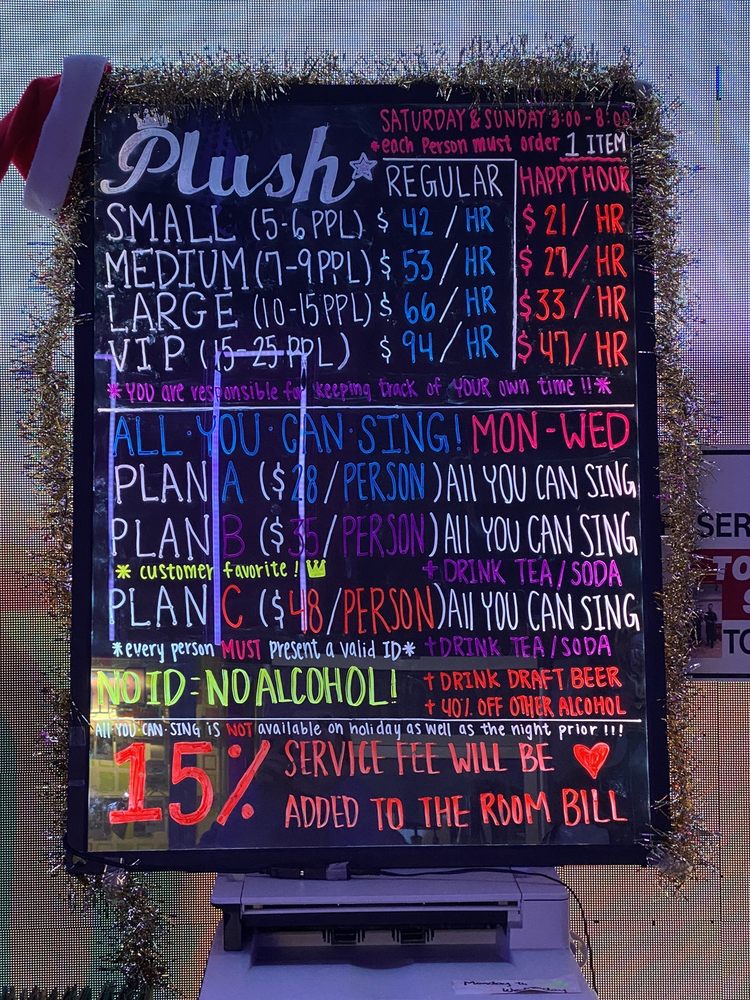 SATURDAY & SUNDAY 3:00 - 8:00
Plush
*each Person must order 1 ITEM
REGULAR HAPPY HOUR
SMALL (5-6 PPL) $ 42 / HR $ 21 / HR
MEDIUM (7-9 PPL) $ 53 / HR $ 27 / HR
LARGE (10-15 PPL) $ 66 / HR $33 / HR
VIP (15-25 PPL) $ 94 / HR $ 47 / HR
*YOU are responsible for keeping track of YOUR own time !!*
ALL·YOU·CAN·SING! MON-WED
PLAN A ($28/PERSON) All YOU CAN SING
PLAN B ($35/PERSON) All YOU CAN SING
* customer favorite! + DRINK TEA/SODA
PLAN C ($48/PERSON) All YOU CAN SING
*every person MUST present a valid ID* + DRINK TEA/SODA
NO ID = NO ALCOHOL! + DRINK DRAFT BEER
+ 40% OFF OTHER ALCOHOL
All YOU·CAN·SING IS NOT available on holiday as well as the night prior !!!
15% SERVICE FEE WILL BE
ADDED TO THE ROOM BILL
SER
TO
Monday to
Wednesday